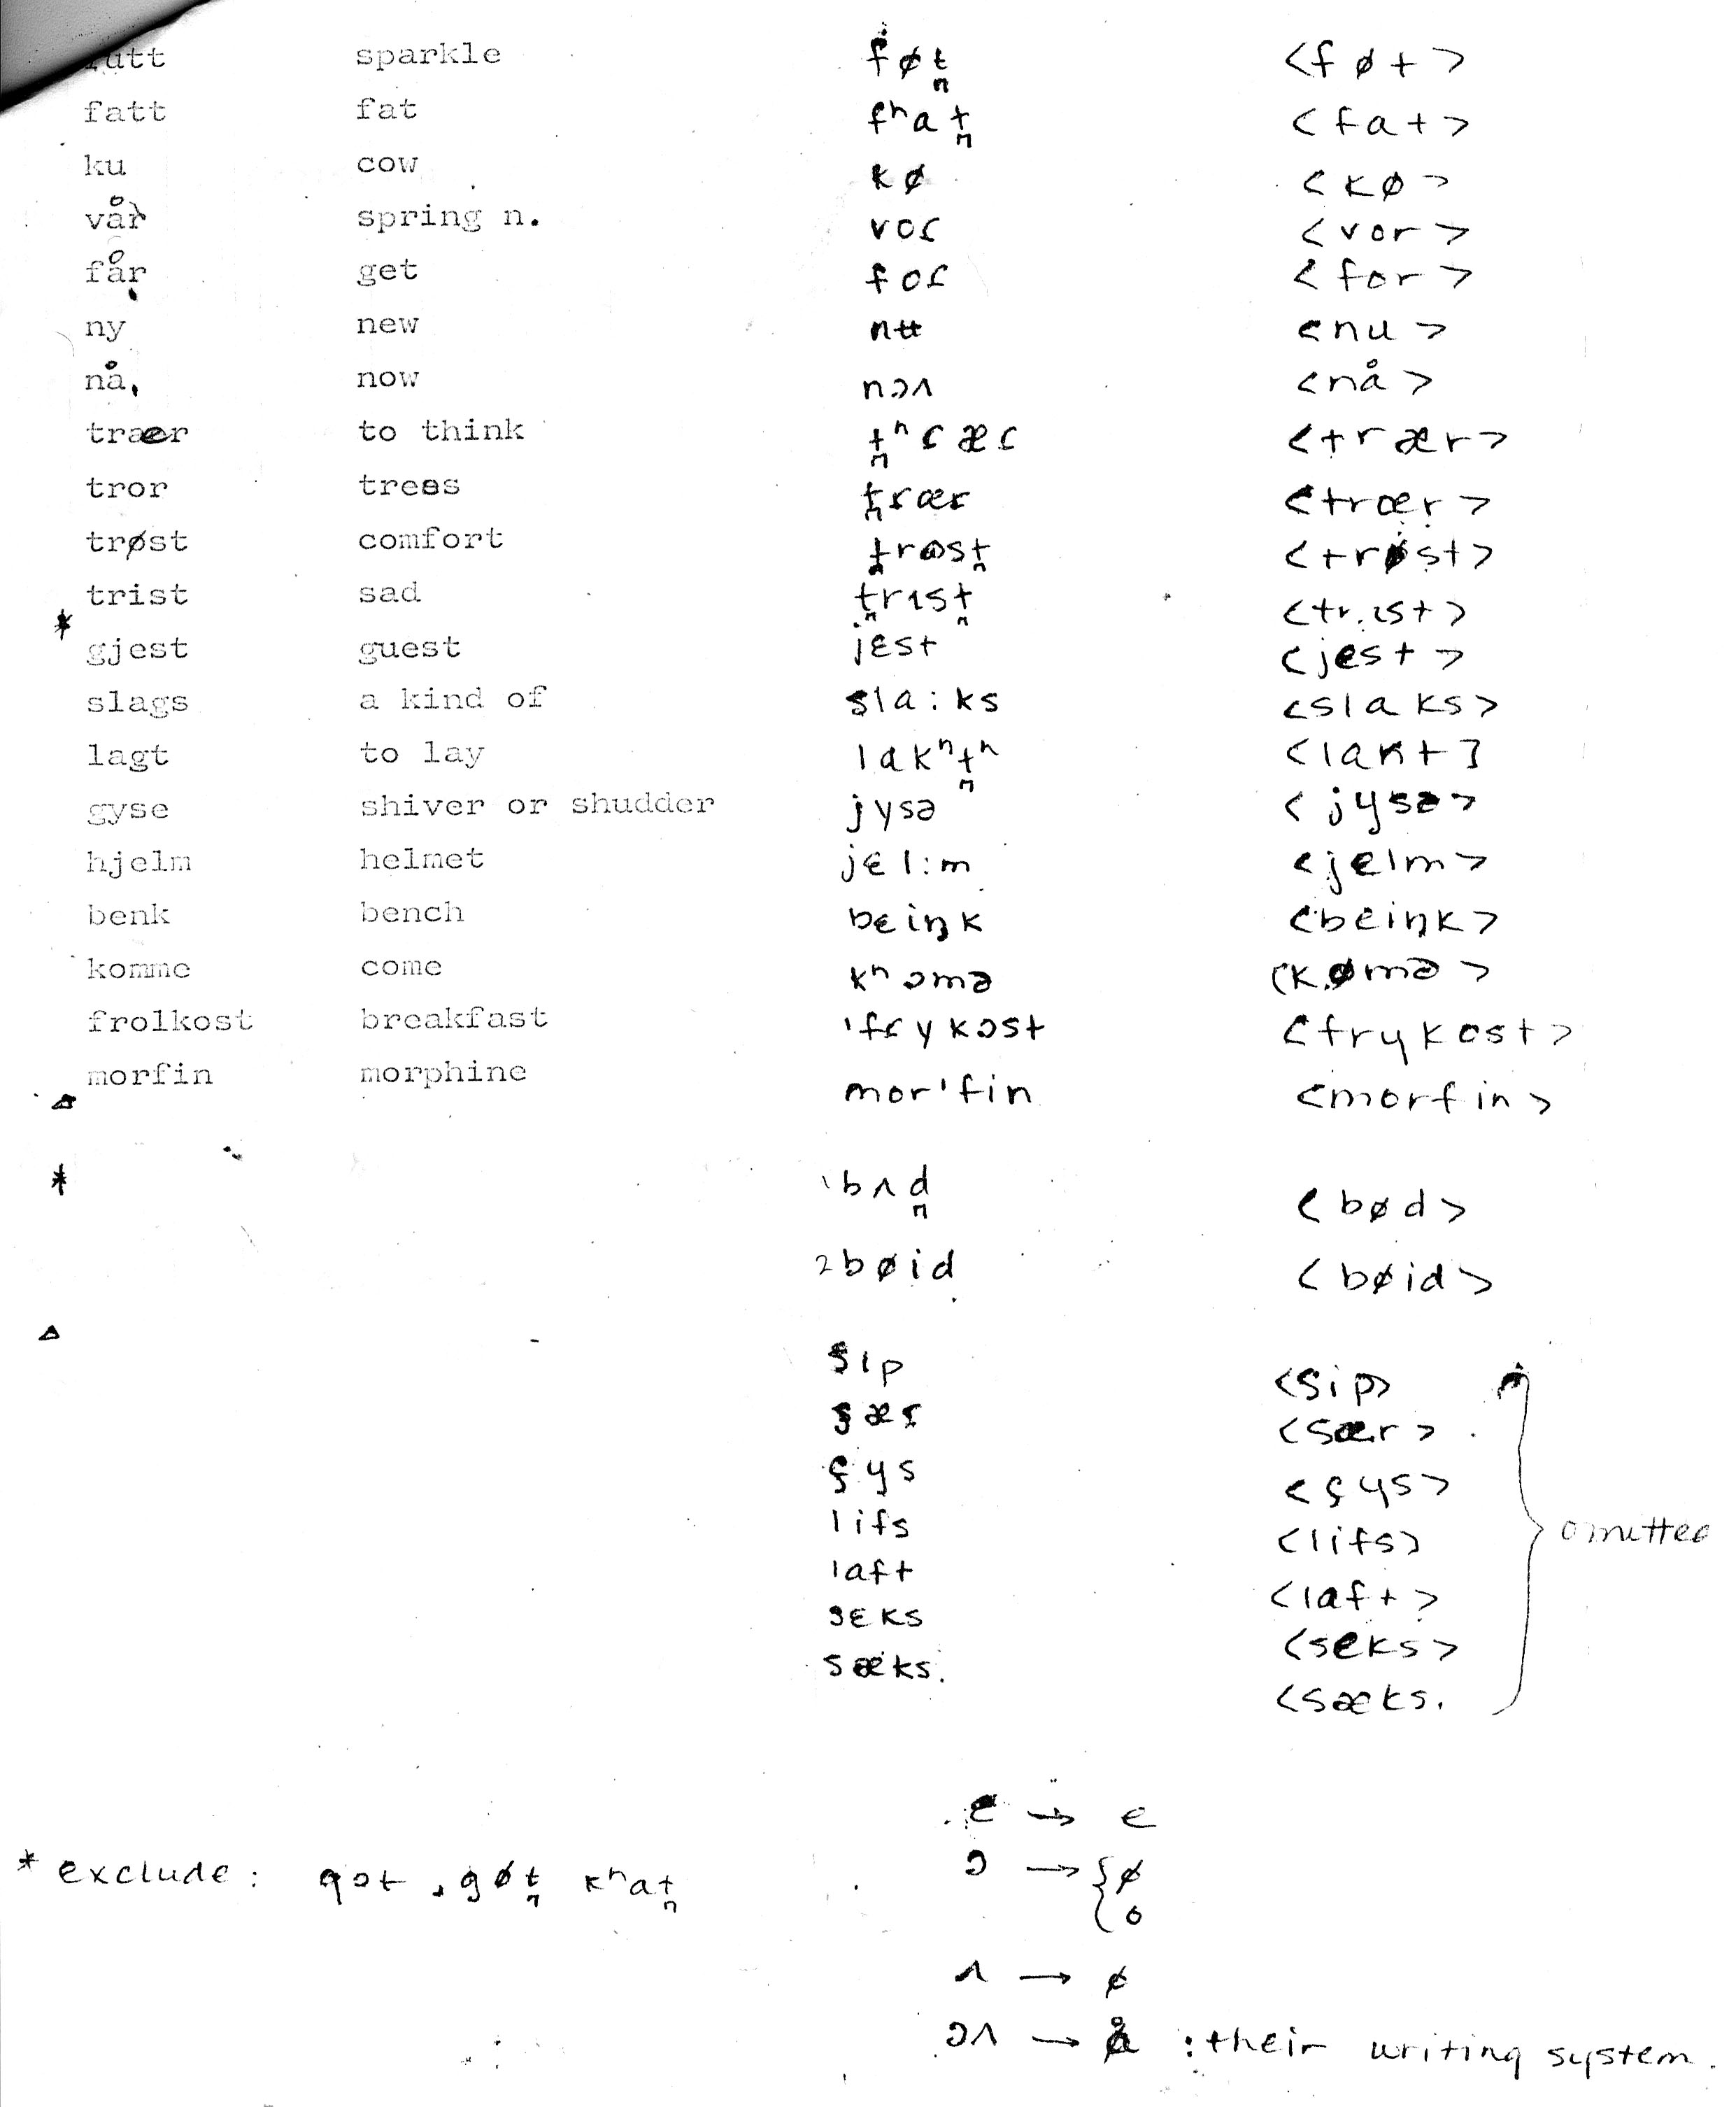 sparkle føt̪ <føt>
fatt fat fʰat̪ <fat>
ku cow kø <kø>
vår spring n. voɾ <vor>
får get foɾ <for>
ny new nʉ <nu>
nå, now nɔʌ <nå>
traer to think t̪ʰɾæɾ <trær>
tror trees t̪ɾæɾ <trær>
trøst comfort t̪rɵst̪ <trøst>
trist sad t̪rɪst̪ <trɪst>
* gjest guest jɛst <jest>
slags a kind of sla:ks <slaks>
lagt to lay lakʰt̪ʰ <lakt]
gyse shiver or shudder jysə <jysə>
hjelm helmet jɛl:m <jelm>
benk bench bɛiŋk <beiŋk>
komme come kʰɔmə <kømə>
frolkost breakfast 'fɾykɔst <frykost>
morfin morphine mor'fin <morfin>
* 1 bʌd̪ <bød>
2 bøid <bøid>
sɪp <sip>
ʂæɾ <sær>
çys <çys>
lifs <lifs>
laft <laft>
sɛks <seks>
sæks. <sæks.
e → e
* exclude: gɔt, gøt̪ kʰat̪ ɔ → { ø
o
ʌ → ø
ɔʌ → å : their writing system.